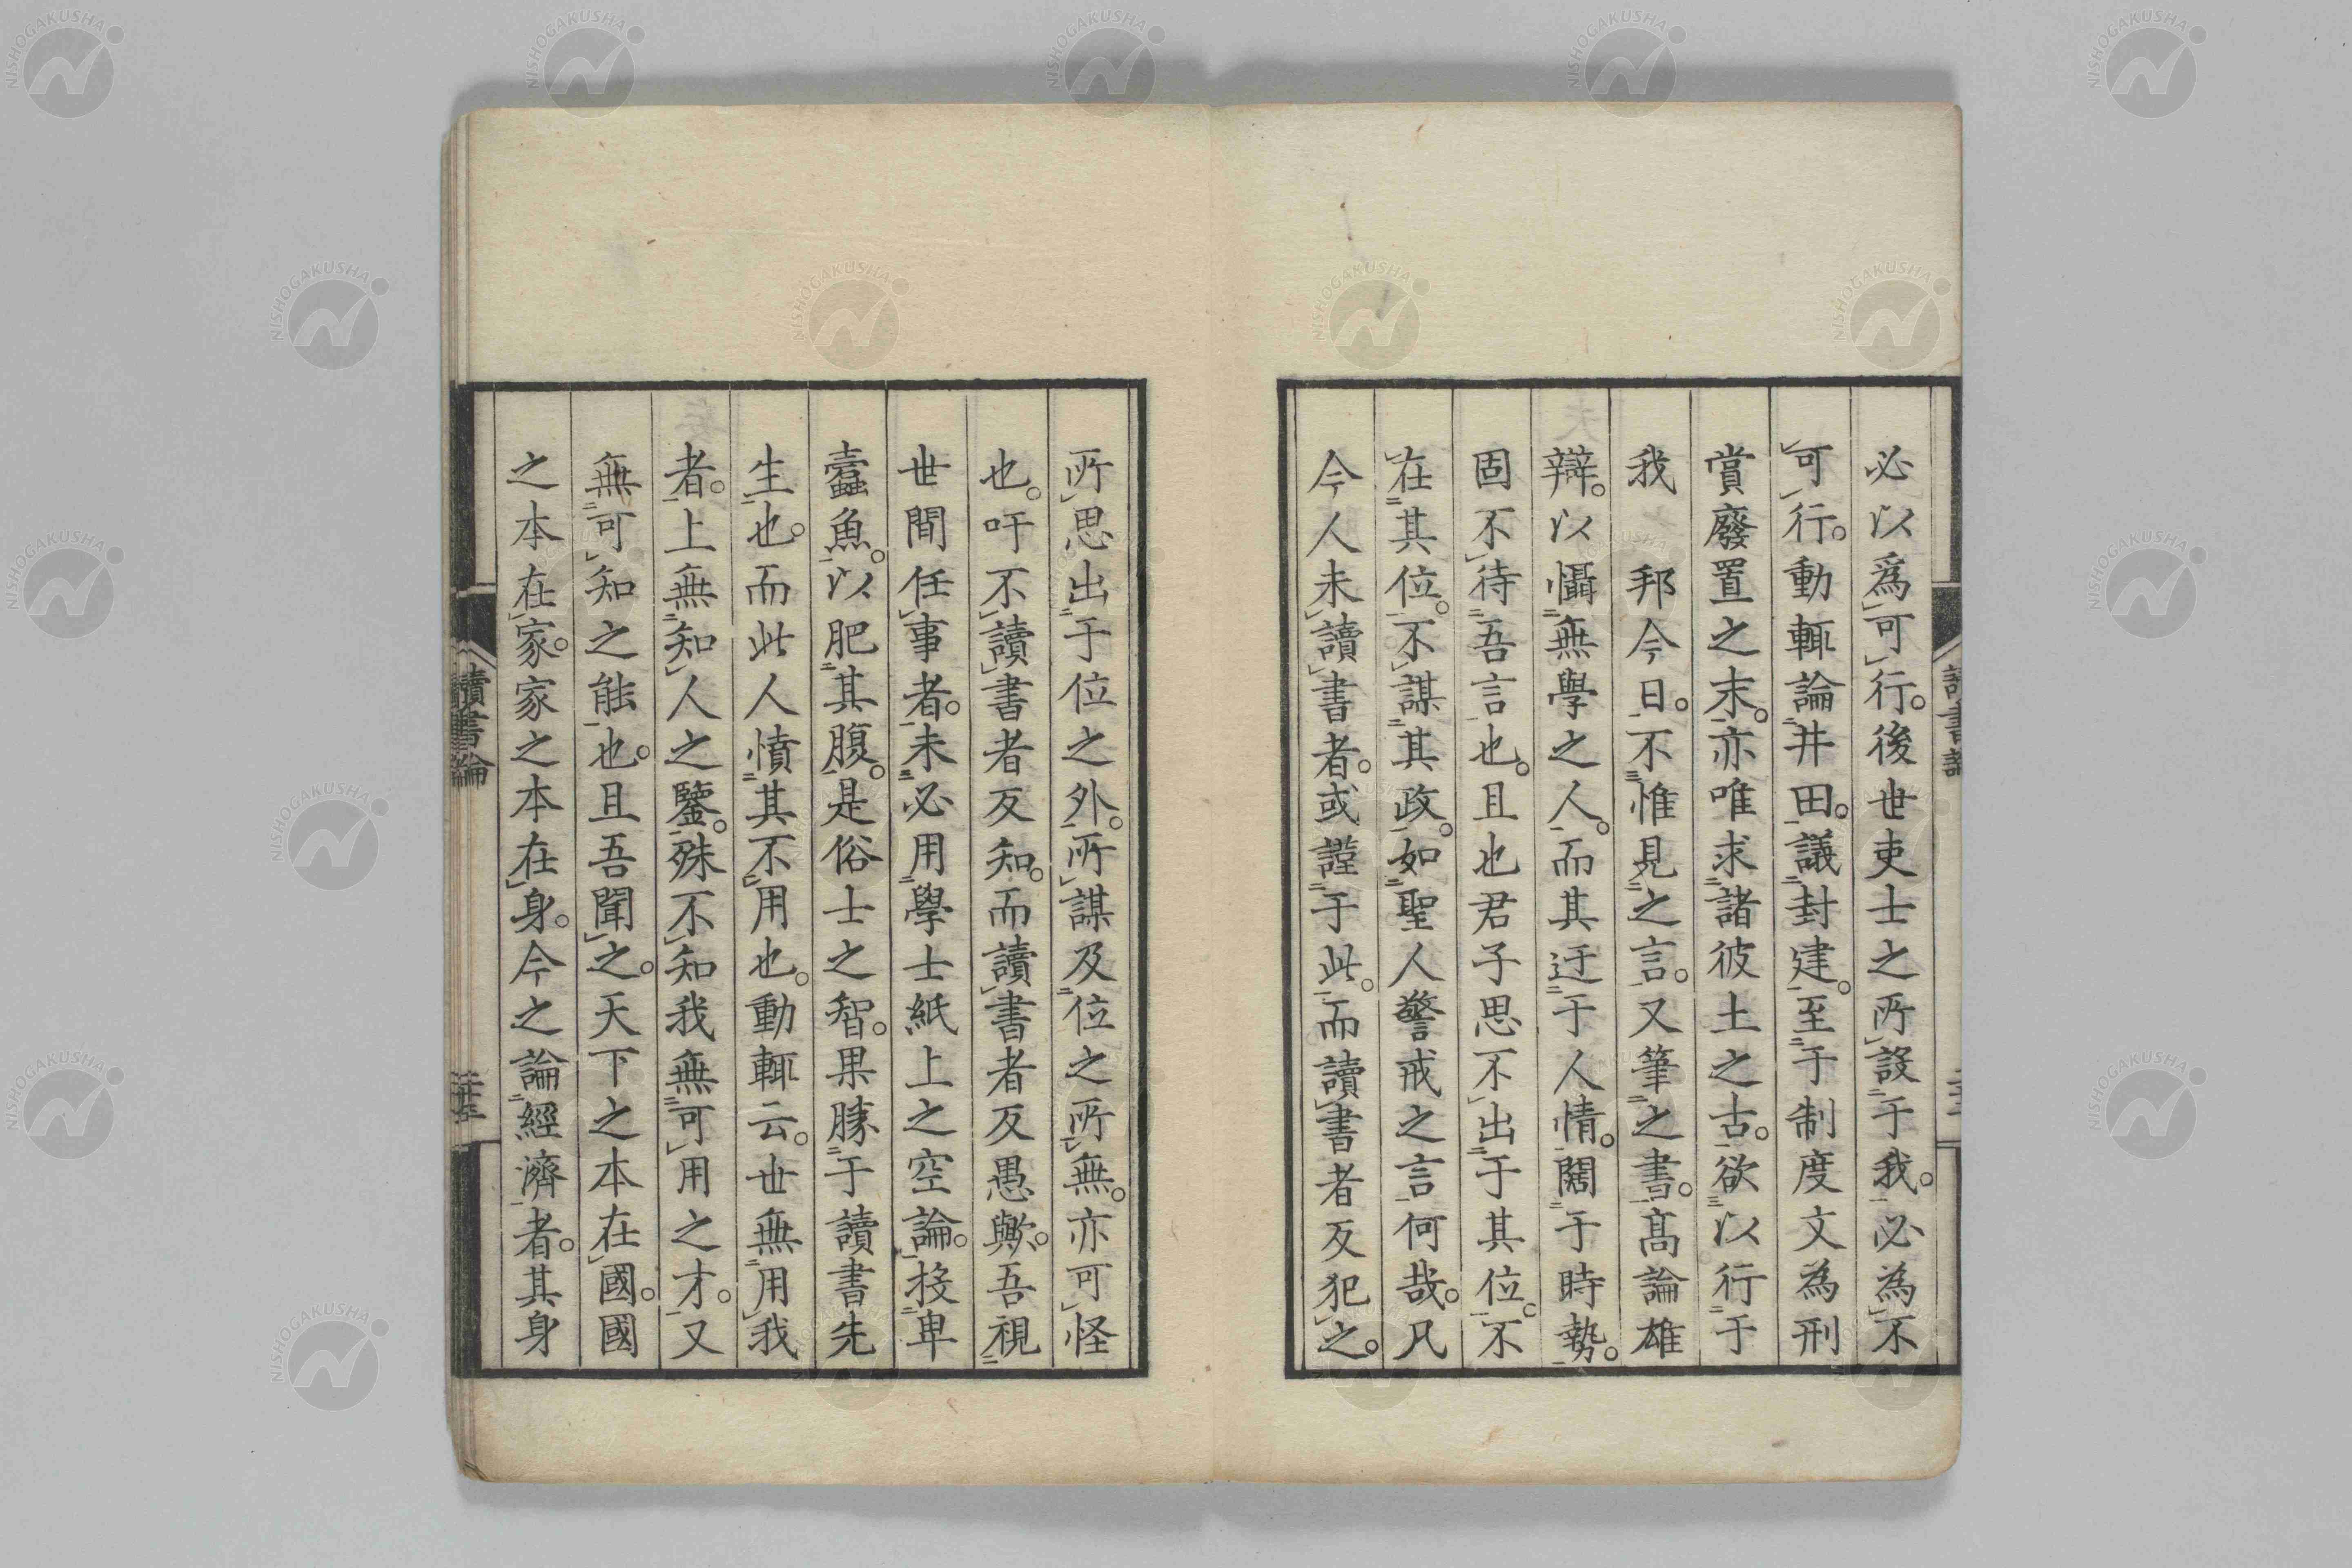 必以爲可行。後世吏士之所設于我。必為不
可行。動輒論井田。議封建。至于制度文為刑
賞廢置之末。亦唯求諸彼土之古。欲以行于
我 邦今日。不惟見之言。又筆之書。髙論雄
辯。以懾無學之人。而其迂于人情。闊于時勢。
固不待吾言也。且也君子思不出于其位。不
在其位。不謀其政。如聖人警戒之言何哉。凡
今人未讀書者。或謹于此。而讀書者反犯之。
所思出于位之外。所謀及位之所無。亦可怪
也。吁不讀書者反知。而讀書者反愚歟。吾視
世間任事者。未必用學士紙上之空論。投卑
蠹魚。以肥其腹。是俗士之智。果勝于讀書先
生也。而此人憤其不用也。動輒云。世無用我
者。上無知人之鑒。殊不知我無可用之才。又
無可知之能也。且吾聞之。天下之本在國。國
之本在家。家之本在身。今之論經濟者。其身
讀書論
NISHOGAKUSHA